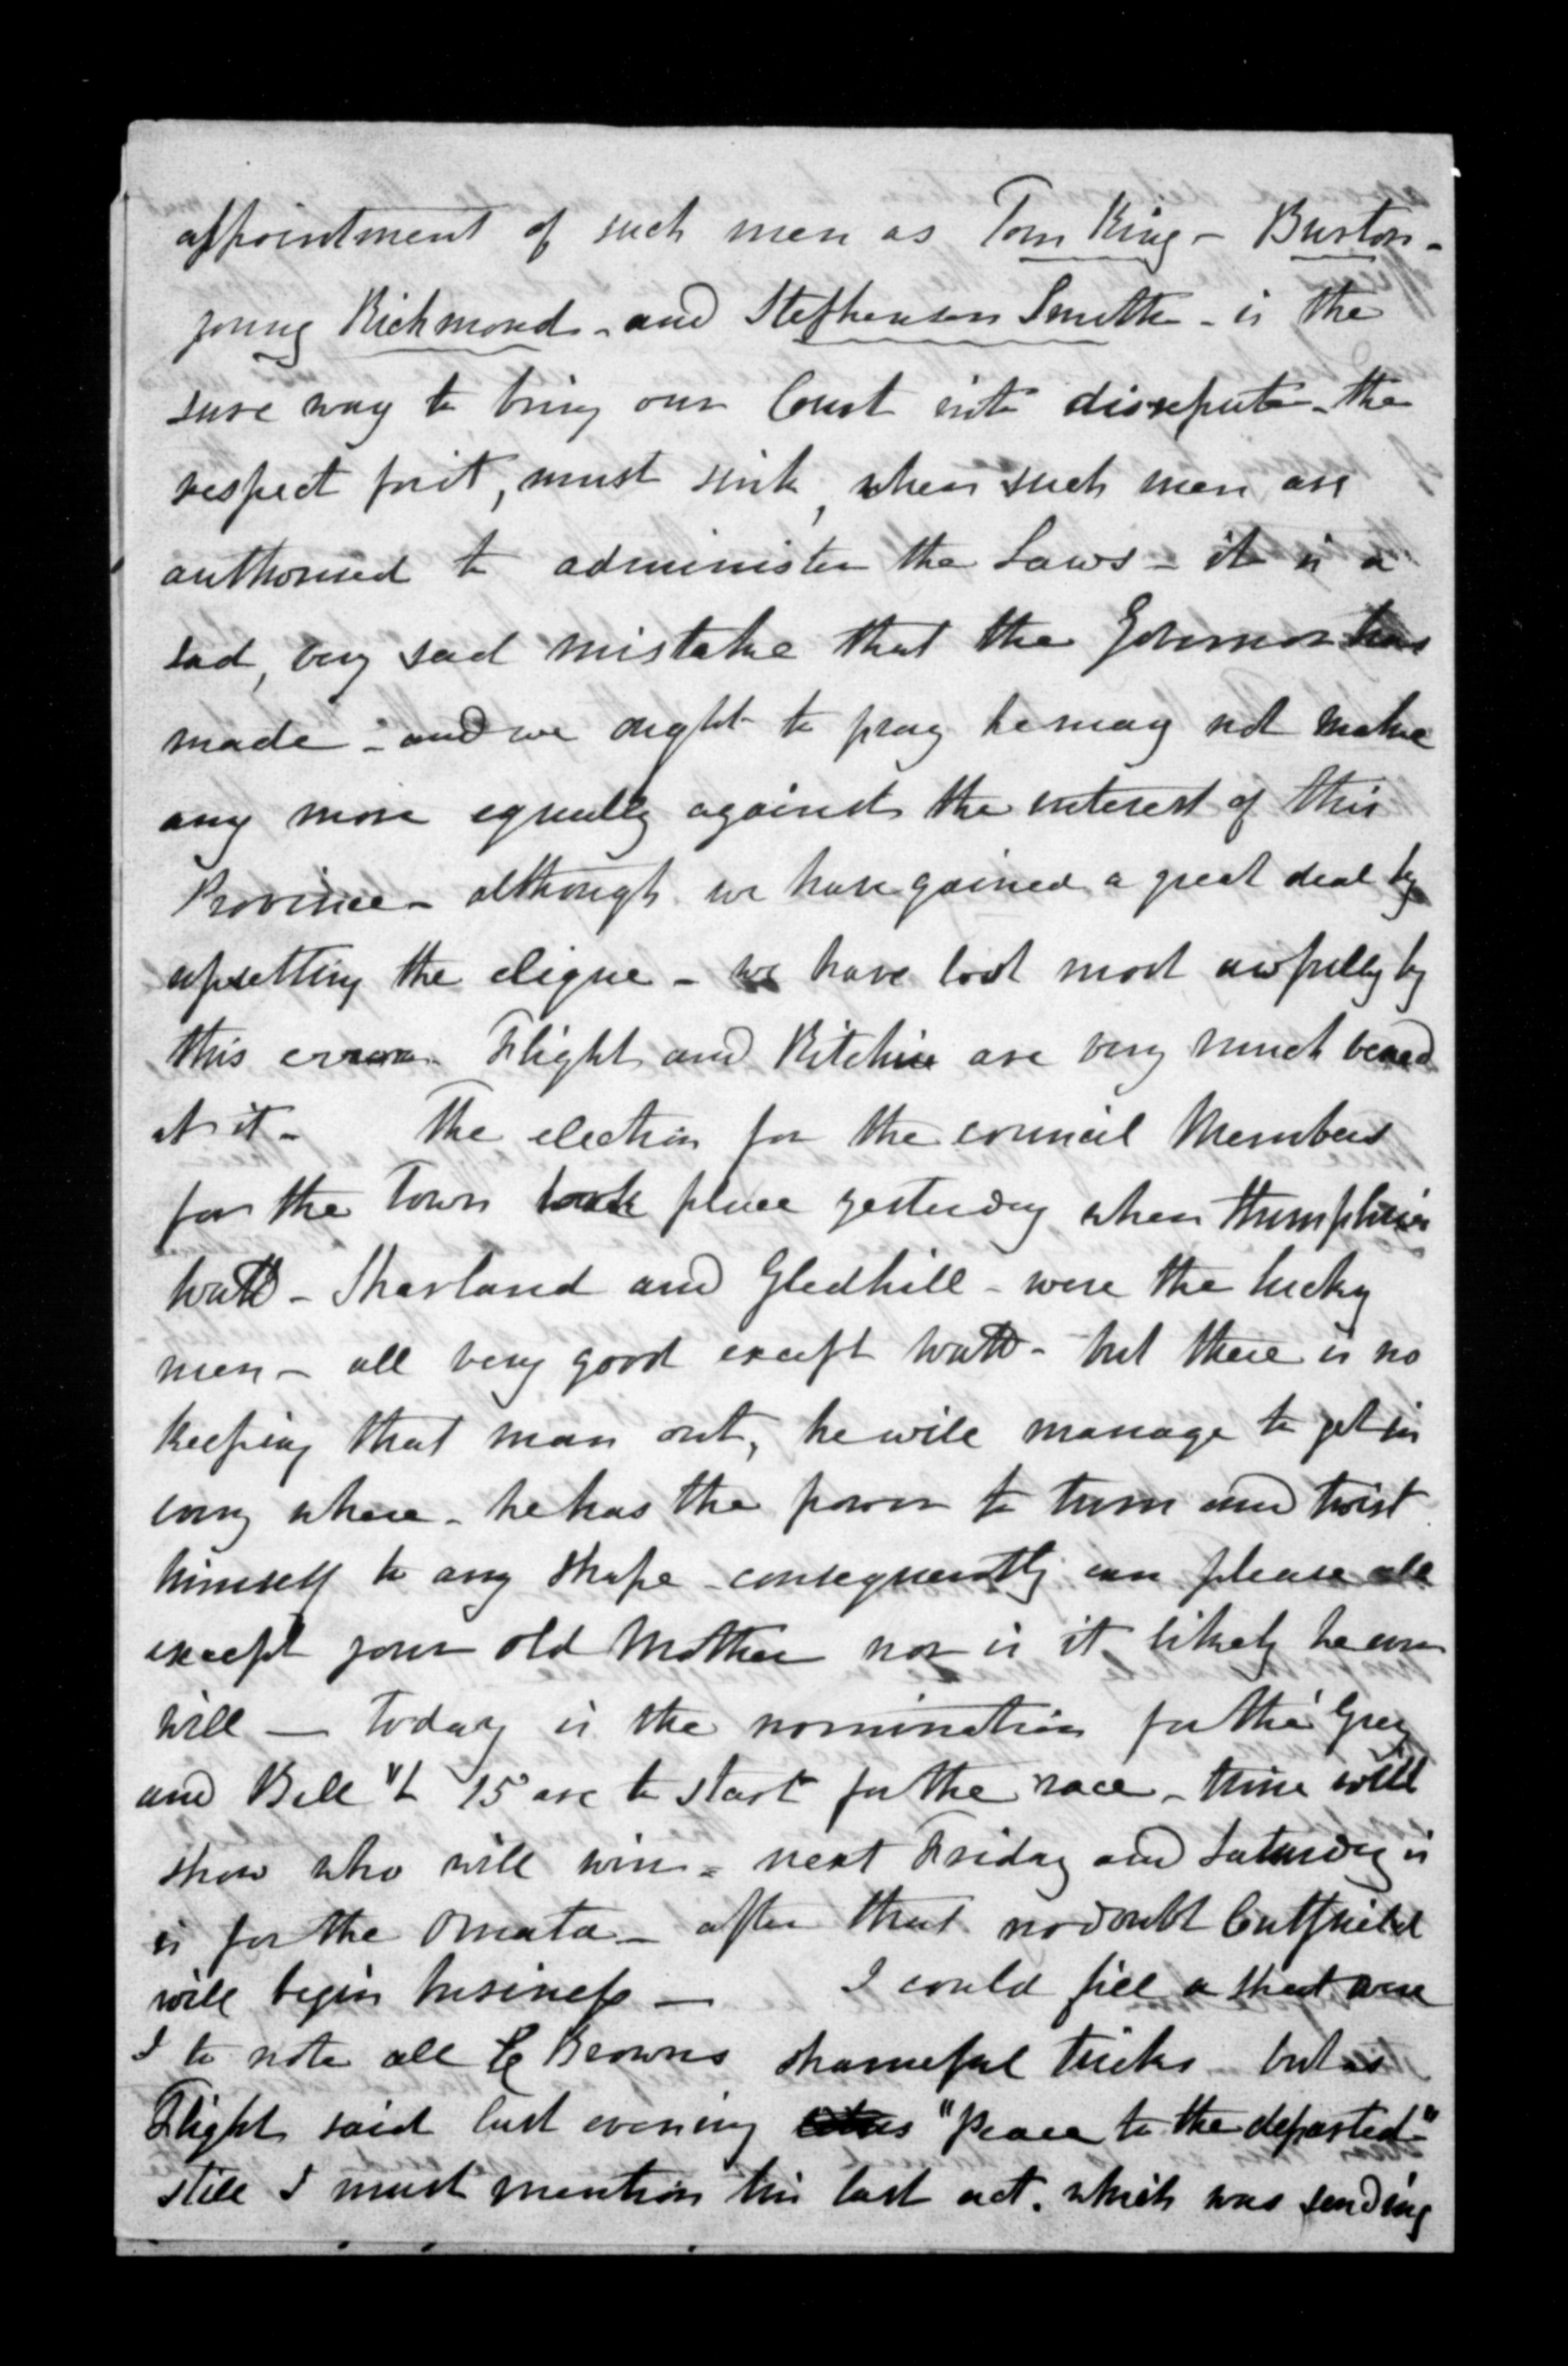 appointment of such men as Tom King - Burton -
young Richmond - and Stephenson Smith - is the
sure way to bring our Court into disrepute - the
respect for it, must sink, when such men are
authorised to administer the Laws - it is a
sad, very sad mistake that the Governor has
made - and we ought to pray he may not make
any more equally against the interest of this
Province - although we have gained a great deal by
upsetting the clique - we have lost most awfully by
this error. Flight and Ritchie are very much
at it - The election for the council Members
for the Town took place yesterday when Humphries
Watt - Sharland and Gledhill - were the lucky
men - all very good except Watt - but there is no
keeping that man out, he will manage to get in
any where - he has the power to turn and twist
himself to any shape - consequently can please all
except your old Mother nor is it likely he ever
will — today is the nomination for the "Grey
and Bell" 15 are to start for the race - time will
show who will win - next Friday and Saturday is
is for the Omata - after that no doubt Cutfield
will begin business — I could fill a sheet were
I to note all C Browns shameful tricks but as
Flight said last evening "Peace to the departed"
still I must mention his last act. which was sending